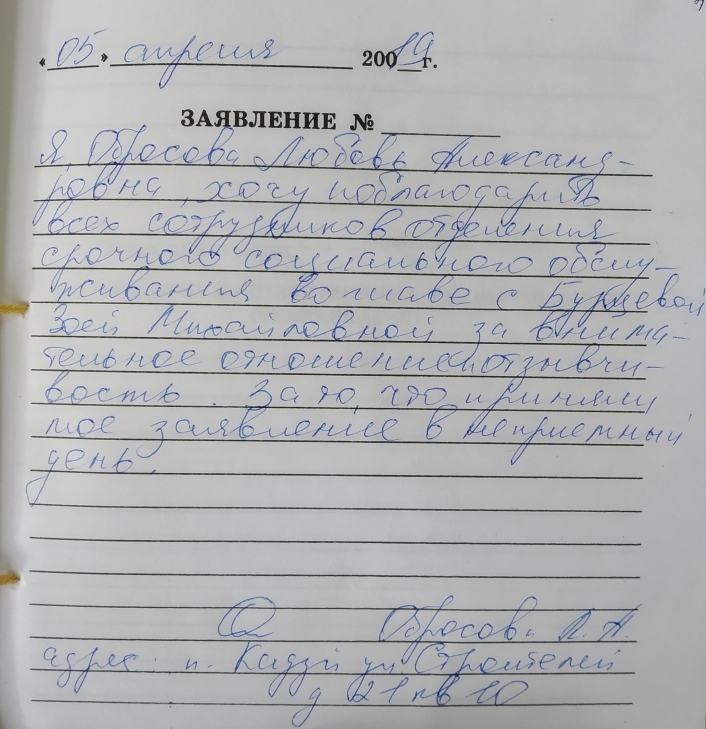 « 05 » апреля 200 19 г.
ЗАЯВЛЕНИЕ №
Я, Обросова Любовь Александ-
ровна, хочу поблагодарить
всех сотрудников отделения
срочного социального обслу-
живания во главе с Бурцевой
Зоей Михайловной за внима-
тельное отношение и отзывчи-
вость. За то, что приняли
мое заявление в неприемный
день.
Обросова Л.А.
адрес: п. Кадуй ул Строителей
д 21 кв 10